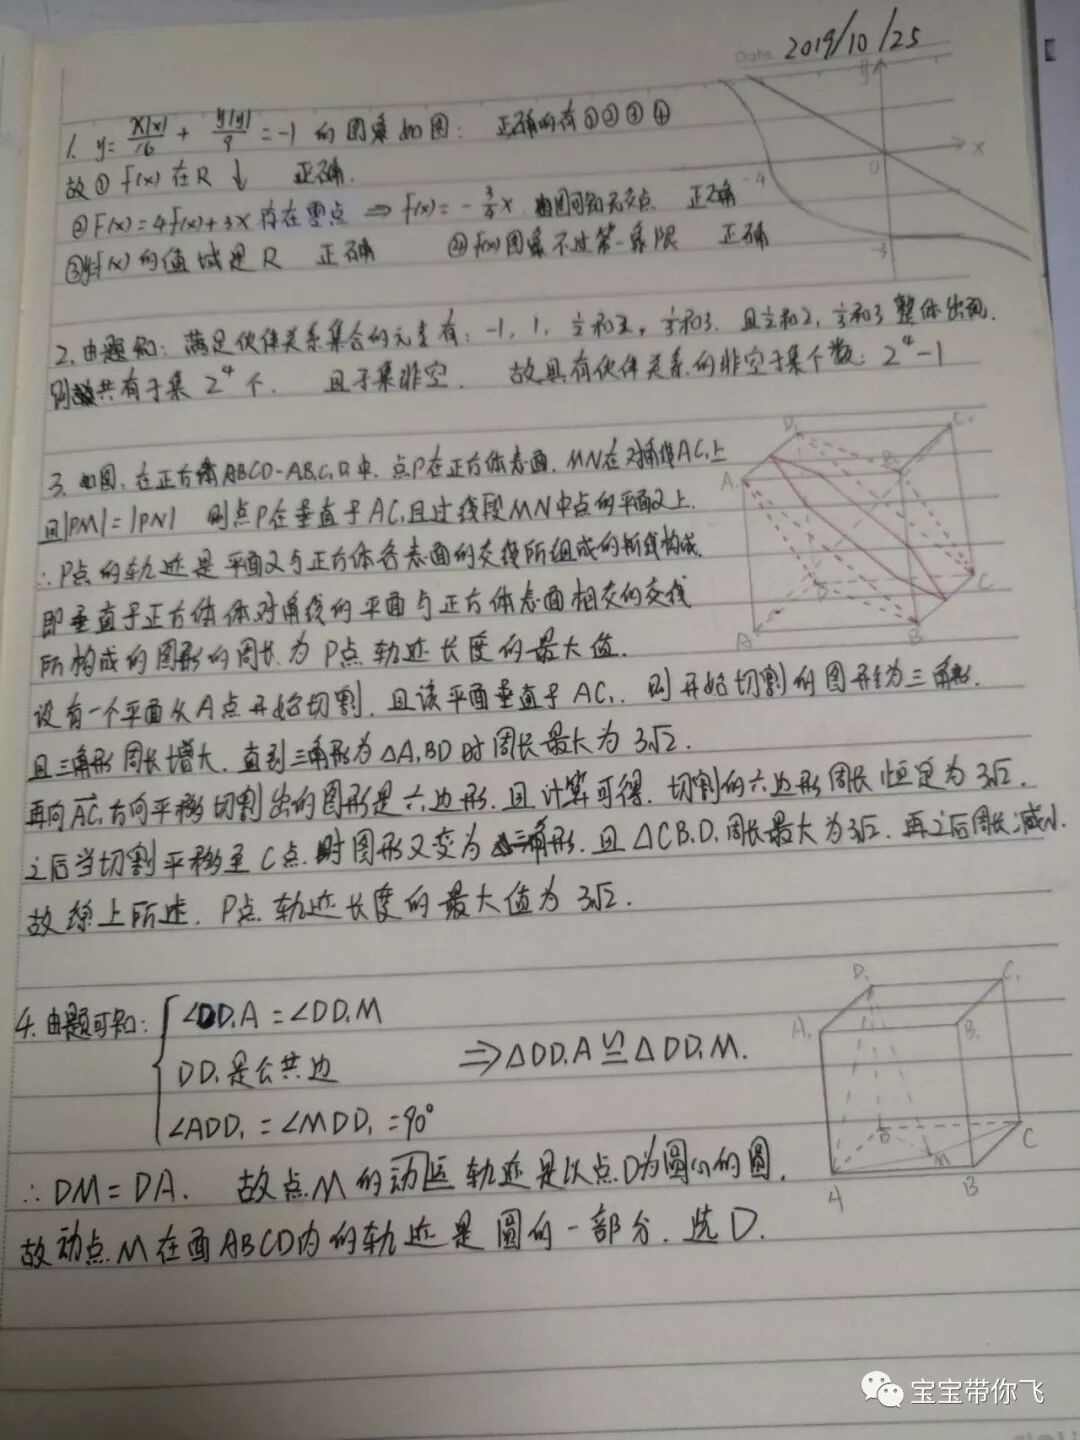 Date. 2019/10/25
1. y= x|x|/16 + y|y|/9 = -1 的图象如图: 正确的有①②③④
故① f(x)在R↓ 正确.
②F(x)=4f(x)+3x存在零点 ⇒ f(x)=-3/4x 由图可知无交点 正确
③y=f(x)的值域是R 正确 ④f(x)图象不过第一象限 正确
y
x
0
-4
-3
2.由题知: 满足伙伴关系集合的元素有: -1, 1, 1/2和2, 1/3和3. 且1/2和2, 1/3和3整体出现.
则共有子集2⁴个. 且子集非空. 故具有伙伴关系的非空子集个数: 2⁴-1
3. 如图, 在正方体ABCD-A₁B₁C₁D₁中, 点P在正方体表面, MN在对角线AC₁上
且|PM|=|PN| 则点P在垂直于AC₁且过线段MN中点的平面α上.
∴P点的轨迹是平面α与正方体各表面的交线所组成的折线构成.
即垂直于正方体体对角线的平面与正方体表面相交的交线
所构成的图形的周长为P点轨迹长度的最大值.
设有一个平面从A点开始切割, 且该平面垂直于AC₁. 则开始切割的图形为三角形.
且三角形周长增大, 直到三角形为△A₁BD时周长最大为3√2.
再向AC₁方向平移切割出的图形是六边形. 且计算可得. 切割的六边形周长恒定为3√2.
之后当切割平移至C点. 时图形又变为三角形. 且△CB₁D₁周长最大为3√2. 再之后周长减小.
故综上所述. P点轨迹长度的最大值为3√2.
D₁
C₁
A₁
B₁
D
C
A
B
4. 由题可知: ∠DD₁A=∠DD₁M
DD₁是公共边 ⇒△DD₁A≌△DD₁M.
∠ADD₁=∠MDD₁=90°
∴DM=DA. 故点M的轨迹是以点D为圆心的圆.
故动点M在面ABCD内的轨迹是圆的一部分. 选D.
D₁
C₁
A₁
B₁
D
C
M
A
B
宝宝带你飞